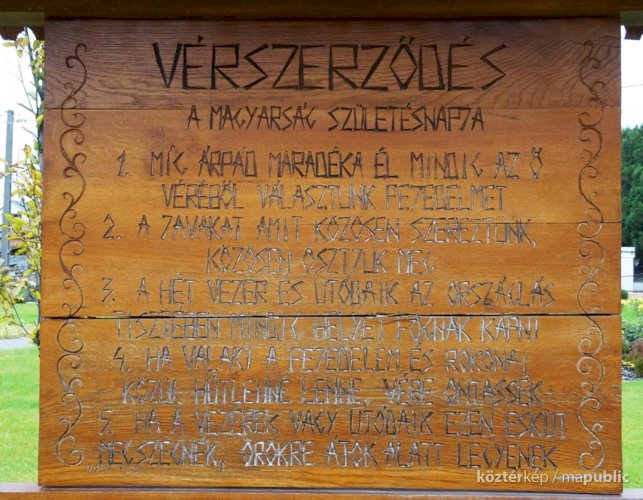 VÉRSZERZŐDÉS
A MAGYARSÁG SZÜLETÉSNAPJA
1. MÍG ÁRPÁD MARADÉKA ÉL MINDIG AZ Ő
VÉRÉBŐL VÁLASZTUNK FEJEDELMET
2. A JAVAKAT AMIT KÖZÖSEN SZEREZTÜNK,
KÖZÖSEN OSZTJUK MEG
3. A HÉT VEZÉR ÉS UTÓDAIK AZ ORSZÁGLÁS
TISZTÉBEN MINDIG HELYET FOGNAK KAPNI
4. HA VALAKI A FEJEDELEM ÉS ROKONAI
KÖZÜL HŰTLENNÉ LENNE, VÉRE ONTASSÉK
5. HA A VEZÉREK VAGY UTÓDAIK EZEN ESKÜT
MEGSZEGNÉK, ÖRÖKRE ÁTOK ALATT LEGYENEK
köztérkép / mapublic